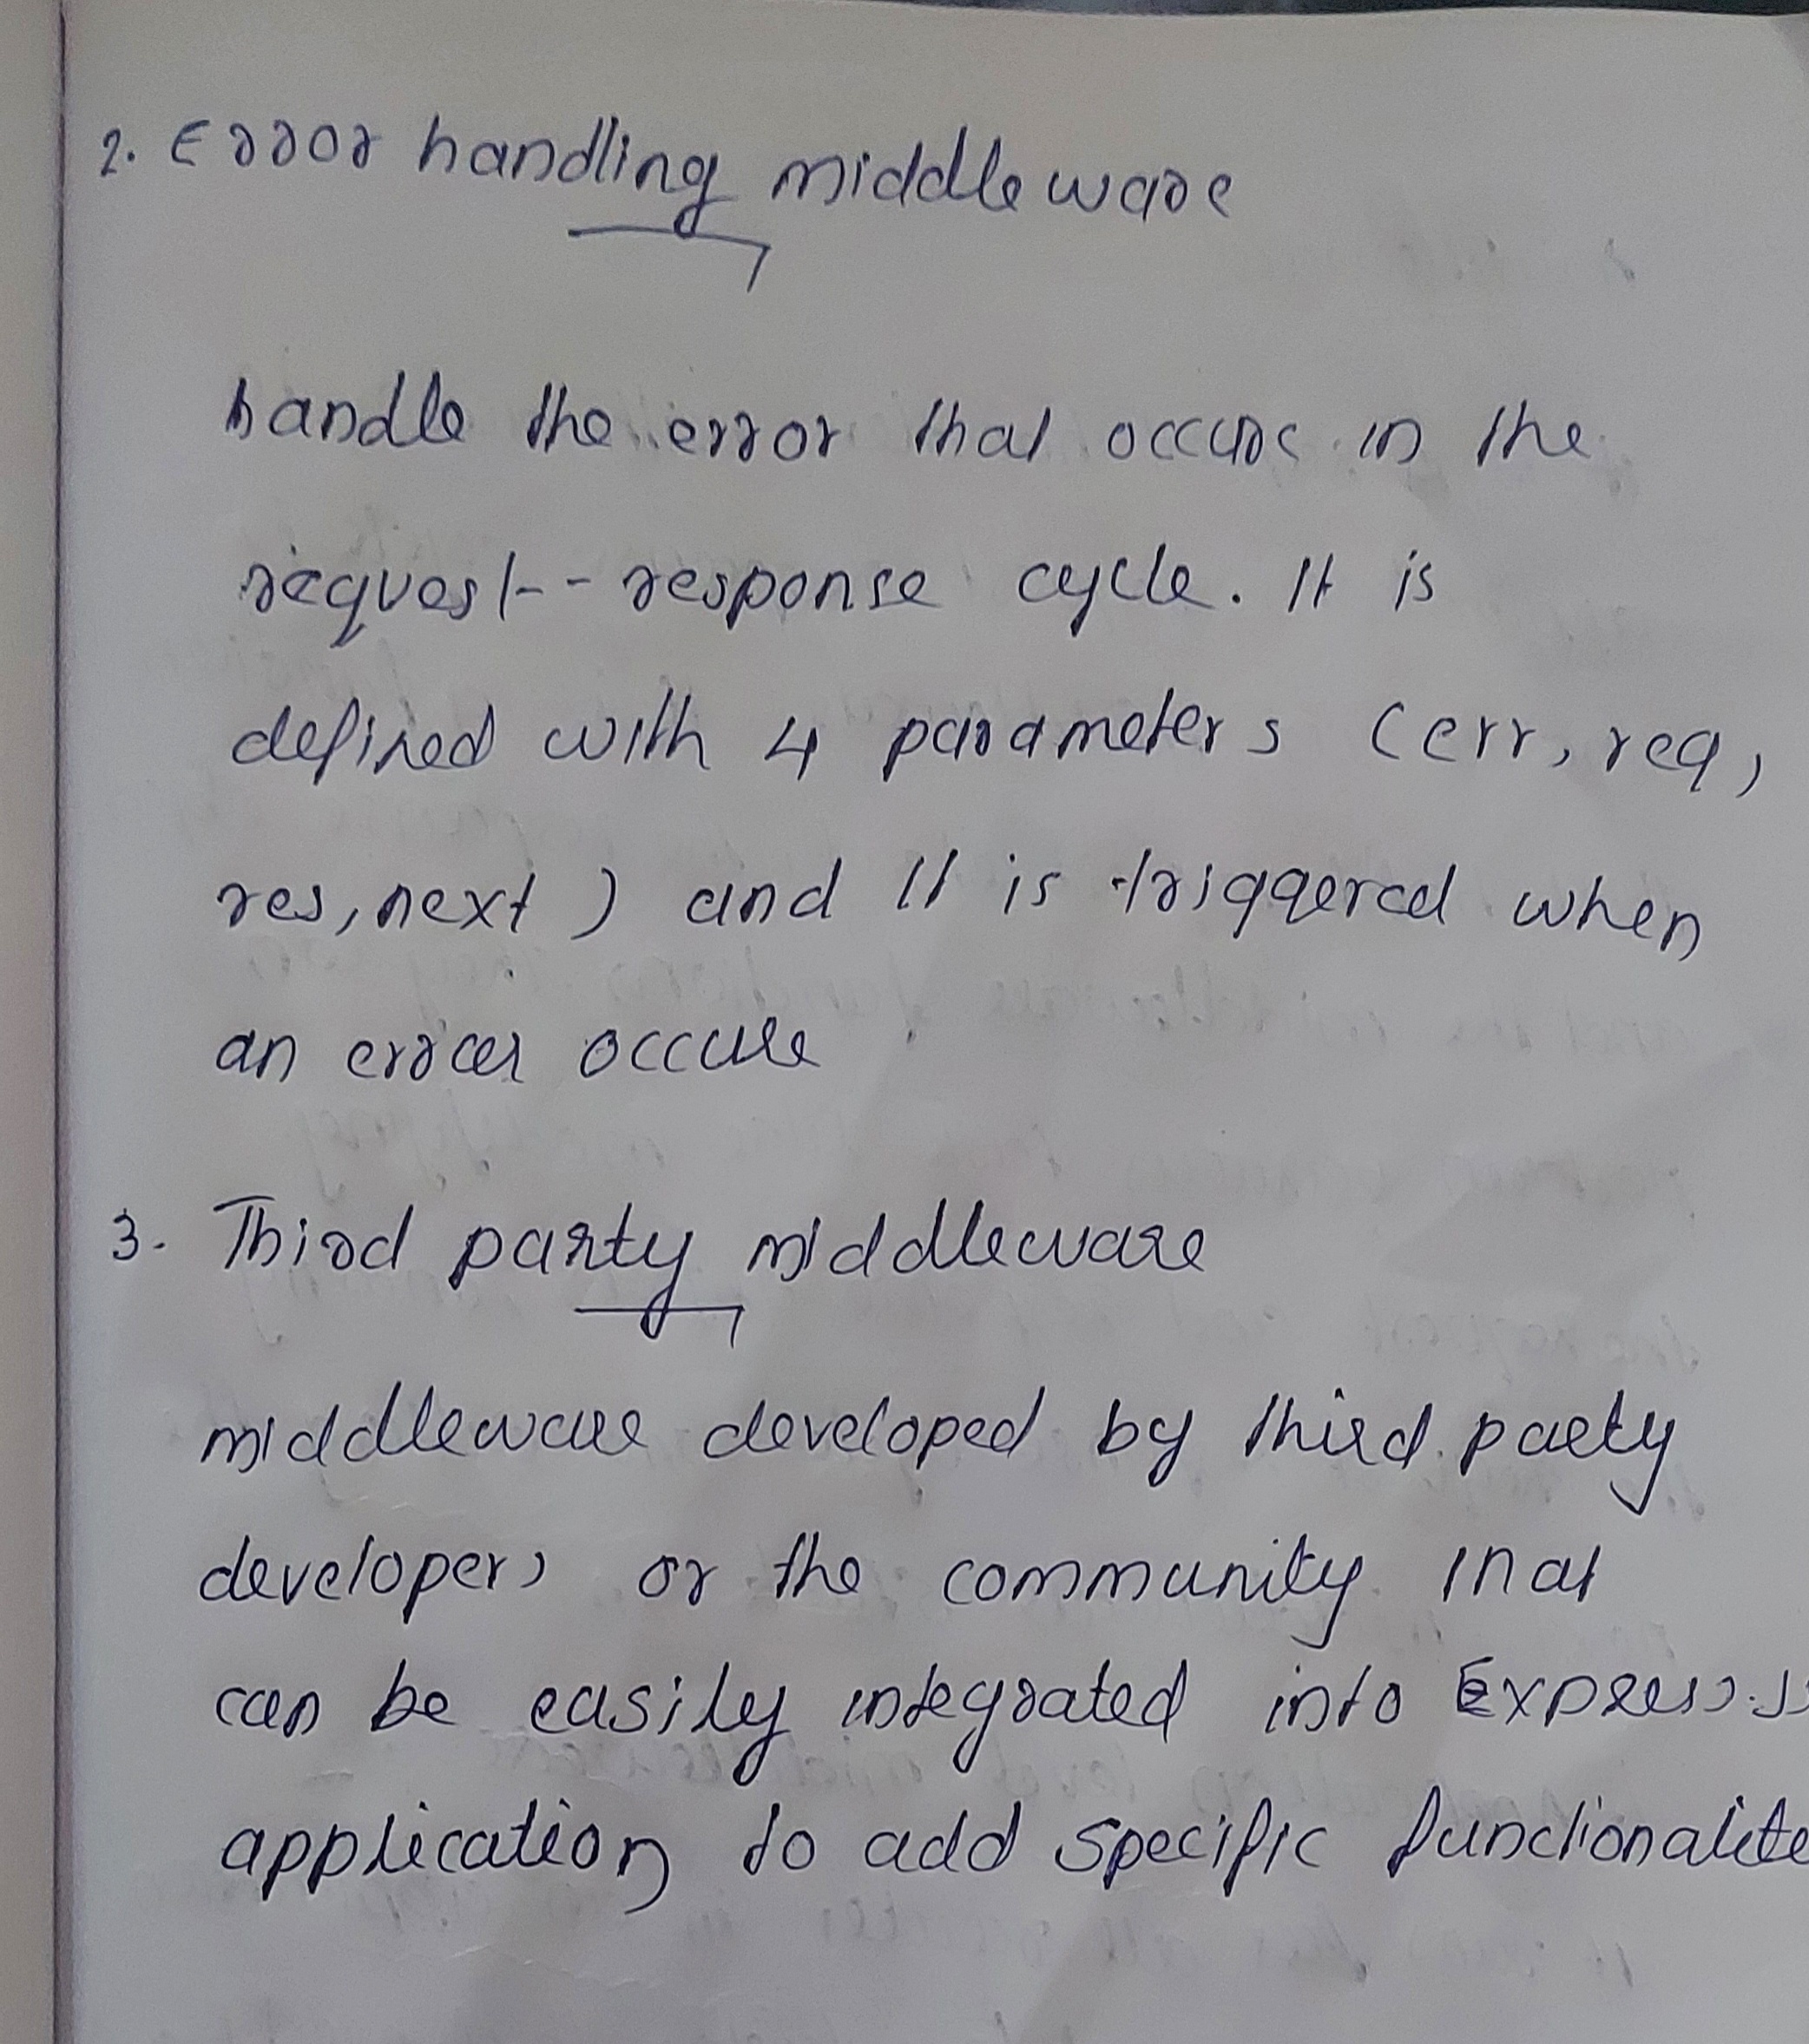 2. Error handling middleware
handle the error that occurs in the
request-- response cycle. It is
defined with 4 parameters (err, req,
res, next ) and it is triggered when
an error occure
3. Third party middleware
middleware developed by third party
developers or the community that
can be easily integrated into Express.js
application to add specific functionalite